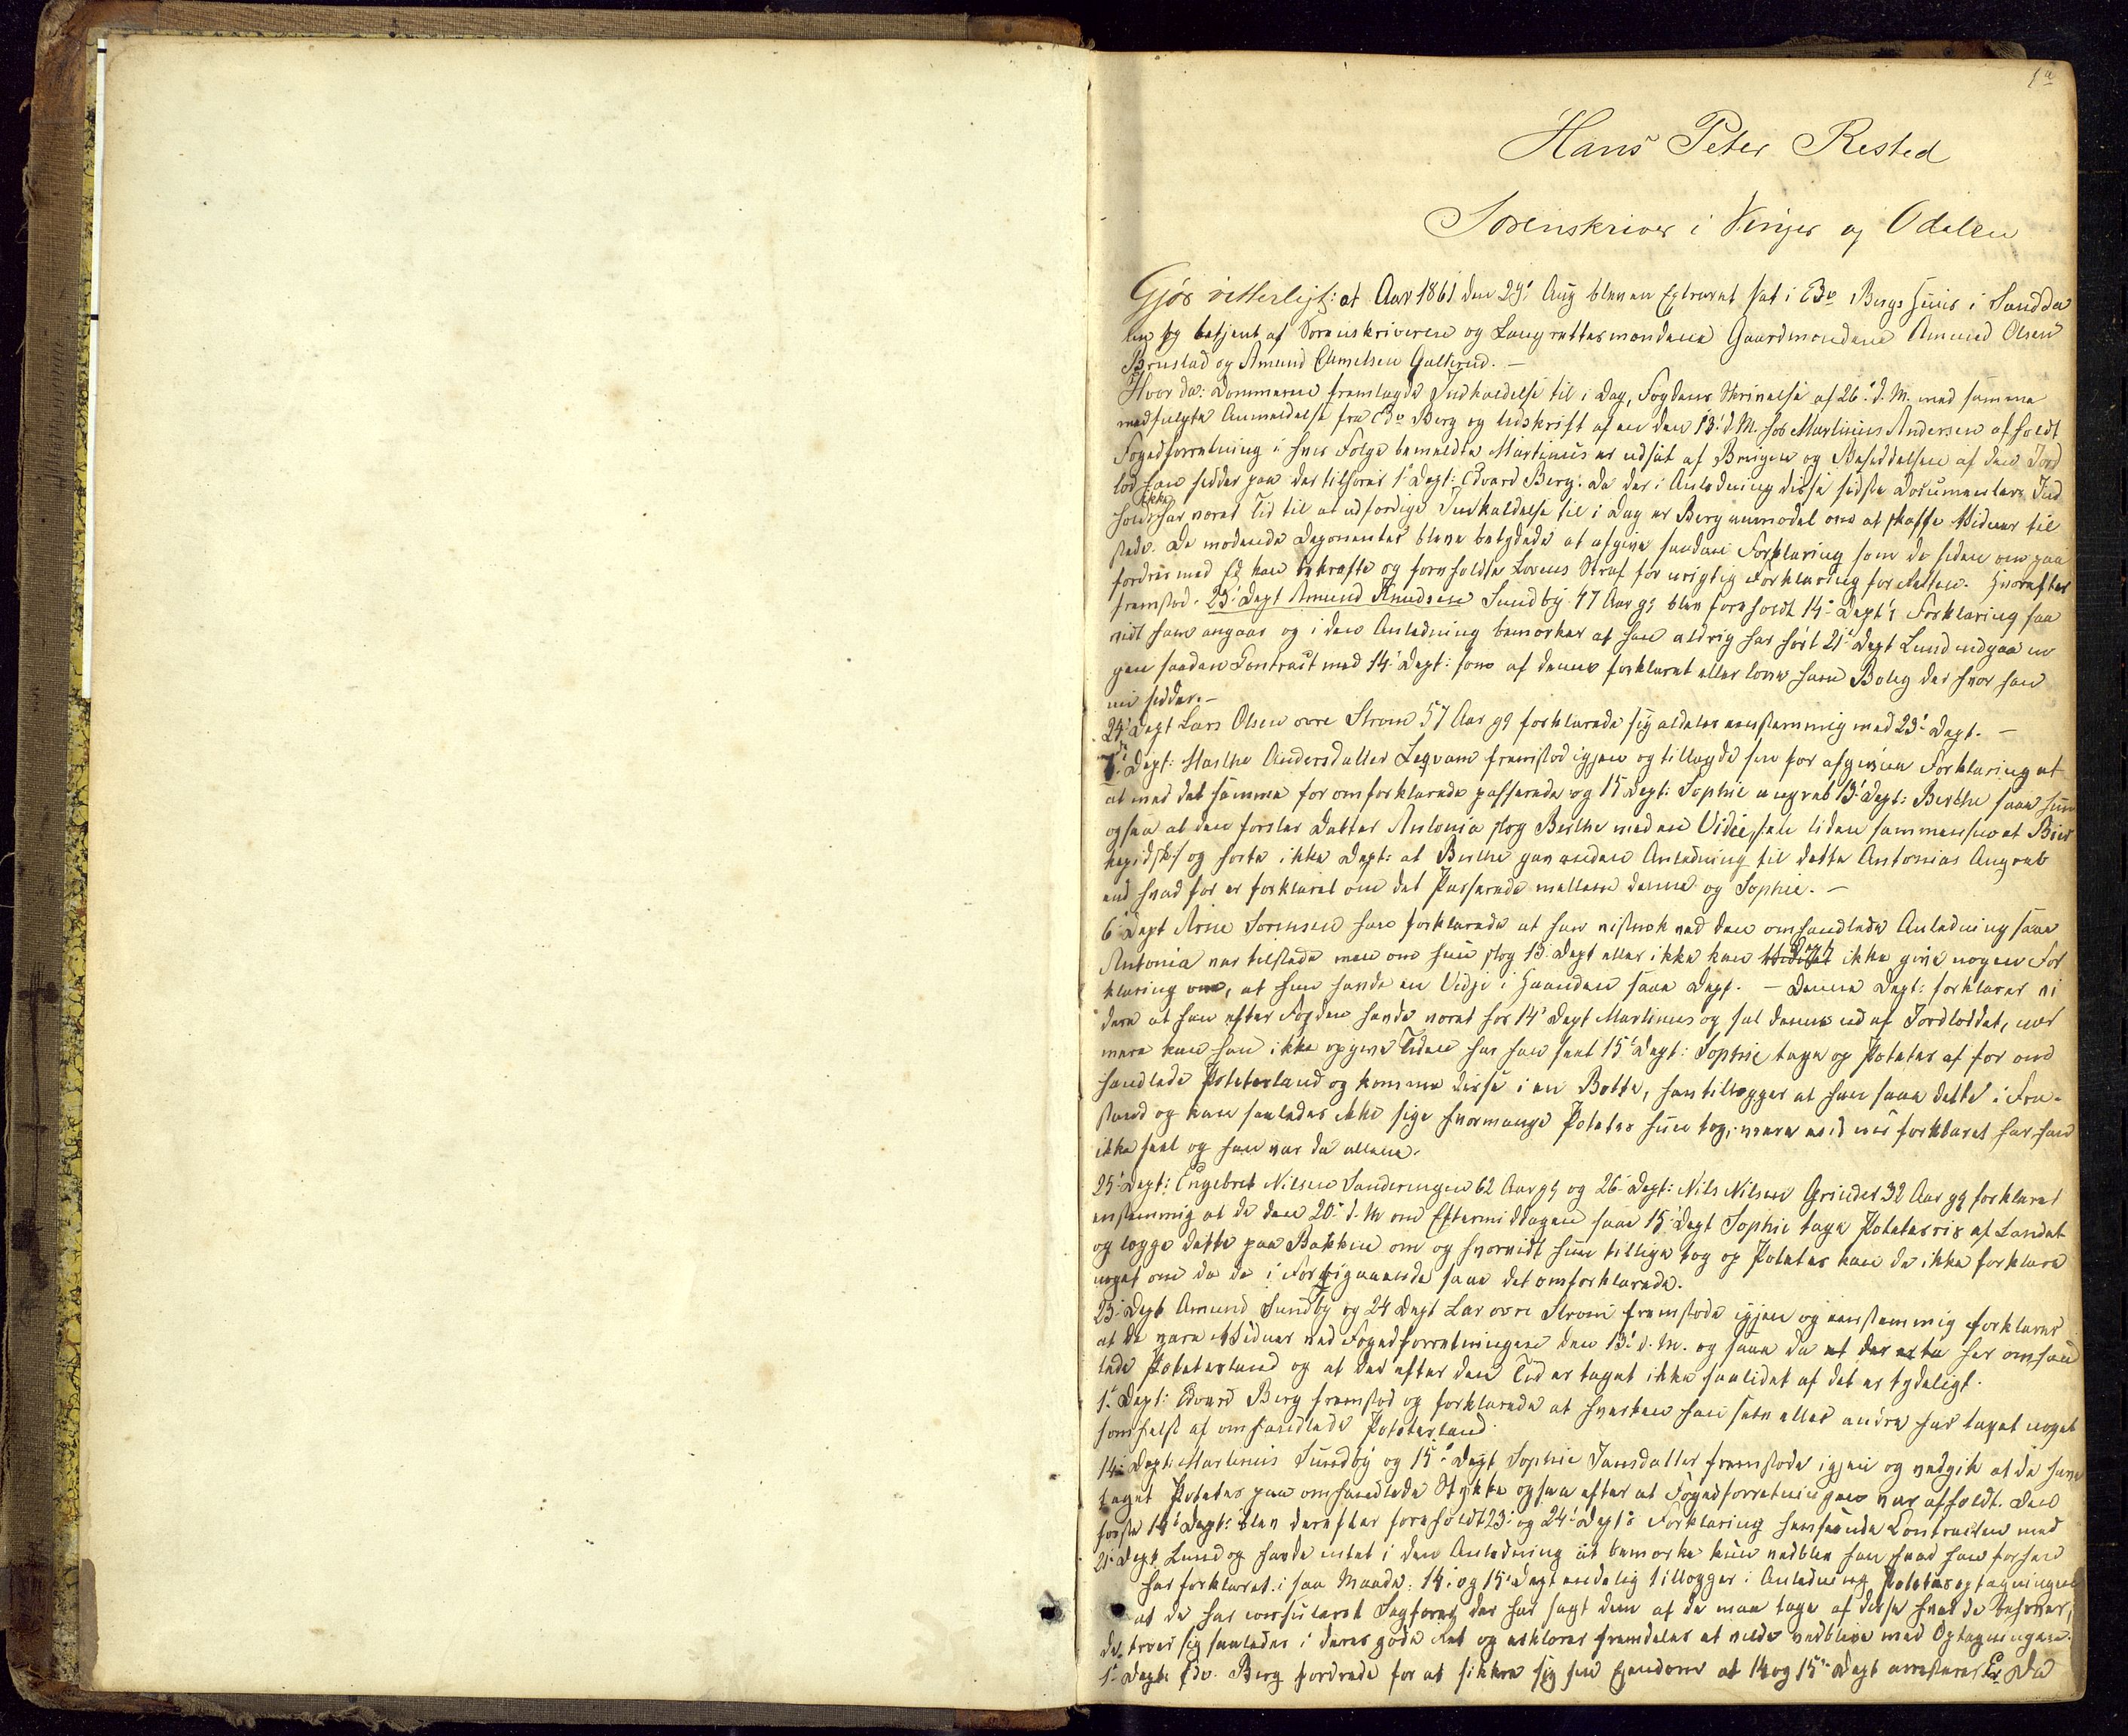 1a
Hans Peter Rested
Sorenskriver i Vinger og Odalen
Gjør vitterligt: at Aar 1861 den 29' Aug blev en Extraret sat i Edv Bergs Huus i Sandda
len og betjent af Sorenskriveren og Laugrettesmændene Gaardmændene Amund Olsen
Brustad og Amund Gulterud. —
Hvor da: Dommeren fremlagde Indkaldelse til i Dag, Fogdens Skrivelse af 26' d. M. med samme
medfulgte Anmeldelse fra Edv Berg og Udskrift af en den 13' d. M. hos Martinius Andersen afholdt
Fogedforretning i hvis Følge bemeldte Martinius er udsat af Brugen og Besiddelsen af den Jord
lod han sidder paa der tilhører 1' Dept: Edvard Berg. Da der i Anledning disse sidste Documenters Ind
hold ikke har været Tid til at udfærdige Indkaldelse til i Dag er Berg anmodet om at skaffe Vidner til
stede. De mødende Deponenter bleve betydede at afgive saadan Forklaring som de siden om paa
fordres med Ed kan bekræfte og foreholdte Lovens Straf for urigtig Forklaring for Retten. Hvorefter
fremstod. 23' Dept Amund Knudsen Sundby 47 Aar gl blev foreholdt 14' Dept's Forklaring saa
vidt ham angaar og i den Anledning bemærker at han aldrig har hørt 21' Dept Lund indgaa no
gen saadan Contract med 14' Dept: som af denne forklaret eller love ham Bolig der hvor han
nu sidder. —
24' Dept Lars Olsen øvre Strøm 57 Aar gl forklarede sig aldeles eenstemmig med 23' Dept. —
Dept: Marthe Andersdatter fremstod igjen og tillagde sin før afgivne Forklaring at
at med det samme før omforklarede passerede og 15 Dept: Sophie angreb 13' Dept: Berthe saae hun
ogsaa at den førstes Datter Antonia slog Berthe med en Vidie,
og hørte ikke Dept: at Berthe gav anden Anledning til dette Antonias Angreb
end hvad før er forklaret om det Passerede mellem denne og Sophie. —
6' Dept Arne Sorensen han forklarede at han vistnok ved den omhandlede Anledning saae
Antonia var tilstede men om hun slog 13' Dept eller ikke kan Dept ikke give nogen For
klaring om, at hun havde en Vidje i Haanden saae Dept. — Denne Dept: forklarer vi
dere at han efter Fogden havde været hos 14' Dept Martinus og sat denne ud af Jordloddet, nær
mere kan han ikke opgive Tiden har han seet 15' Dept: Sophie tage op Poteter af før om
handlede Poteterland og komme disse i en Bøtte, han tillægger at han saae dette i Fra-
stand og kan saaledes ikke sige hvormange Poteter hun tog, mere end nu forklaret har han
ikke seet og han var da allene.
25' Dept: Engebret Nilsen Sanderengen 62 Aar gl og 26' Dept: Nils Nilsen Grinder 32 Aar gl forklaret
enstemmig at de den 20' d. M om Eftermiddagen saae 15' Dept Sophie tage Potetesris af Landet
og lægge dette paa Bakken om og hvorvidt hun tillige tog op Poteter kan de ikke forklare
noget om da de i Forbigaaende saae det omforklarede.
23' Dept Amund Sundby og 24 Dept Lar øvre Strøm fremstode igjen og eenstemmig forklarer
at de vare Vidner ved Fogedforretningen den 13' d. M. og saae da her omhand
lede Poteterland og at der efter den Tid er taget ikke saalidet af det er tydeligt.
1' Dept: Edvard Berg fremstod og forklarede at hverken han selv eller andre har taget noget
somhelst af omhandlede Poteterland
14' Dept: Martinius Sundby og 15' Dept Sophie Jansdatter fremstode igjen og vedgik at de have
taget Poteter paa omhandlede Stykke ogsaa efter at Fogedforretningen var afholdt. Den
første 14' Dept: blev derefter foreholdt 23' og 24' Dept's Forklaring Contracten med
21' Dept Lund og havde intet i den Anledning at bemærke kun vedblev han hvad han forhen
har forklaret i saa Maade. 14' og 15' Dept endelig tillægger i Anledning Potetesoptagningen
at de har consuleret Sagfører der har sagt dem at de maa tage af disse hvad de behøver,
de troer sig saaledes i deres gode Ret og erklærer fremdeles at ville vedblive med Optagningen.
1' Dept: Edv. Berg fordrede for at sikkre sig sin Eiendom at 14 og 15' Dept arresteres. Da